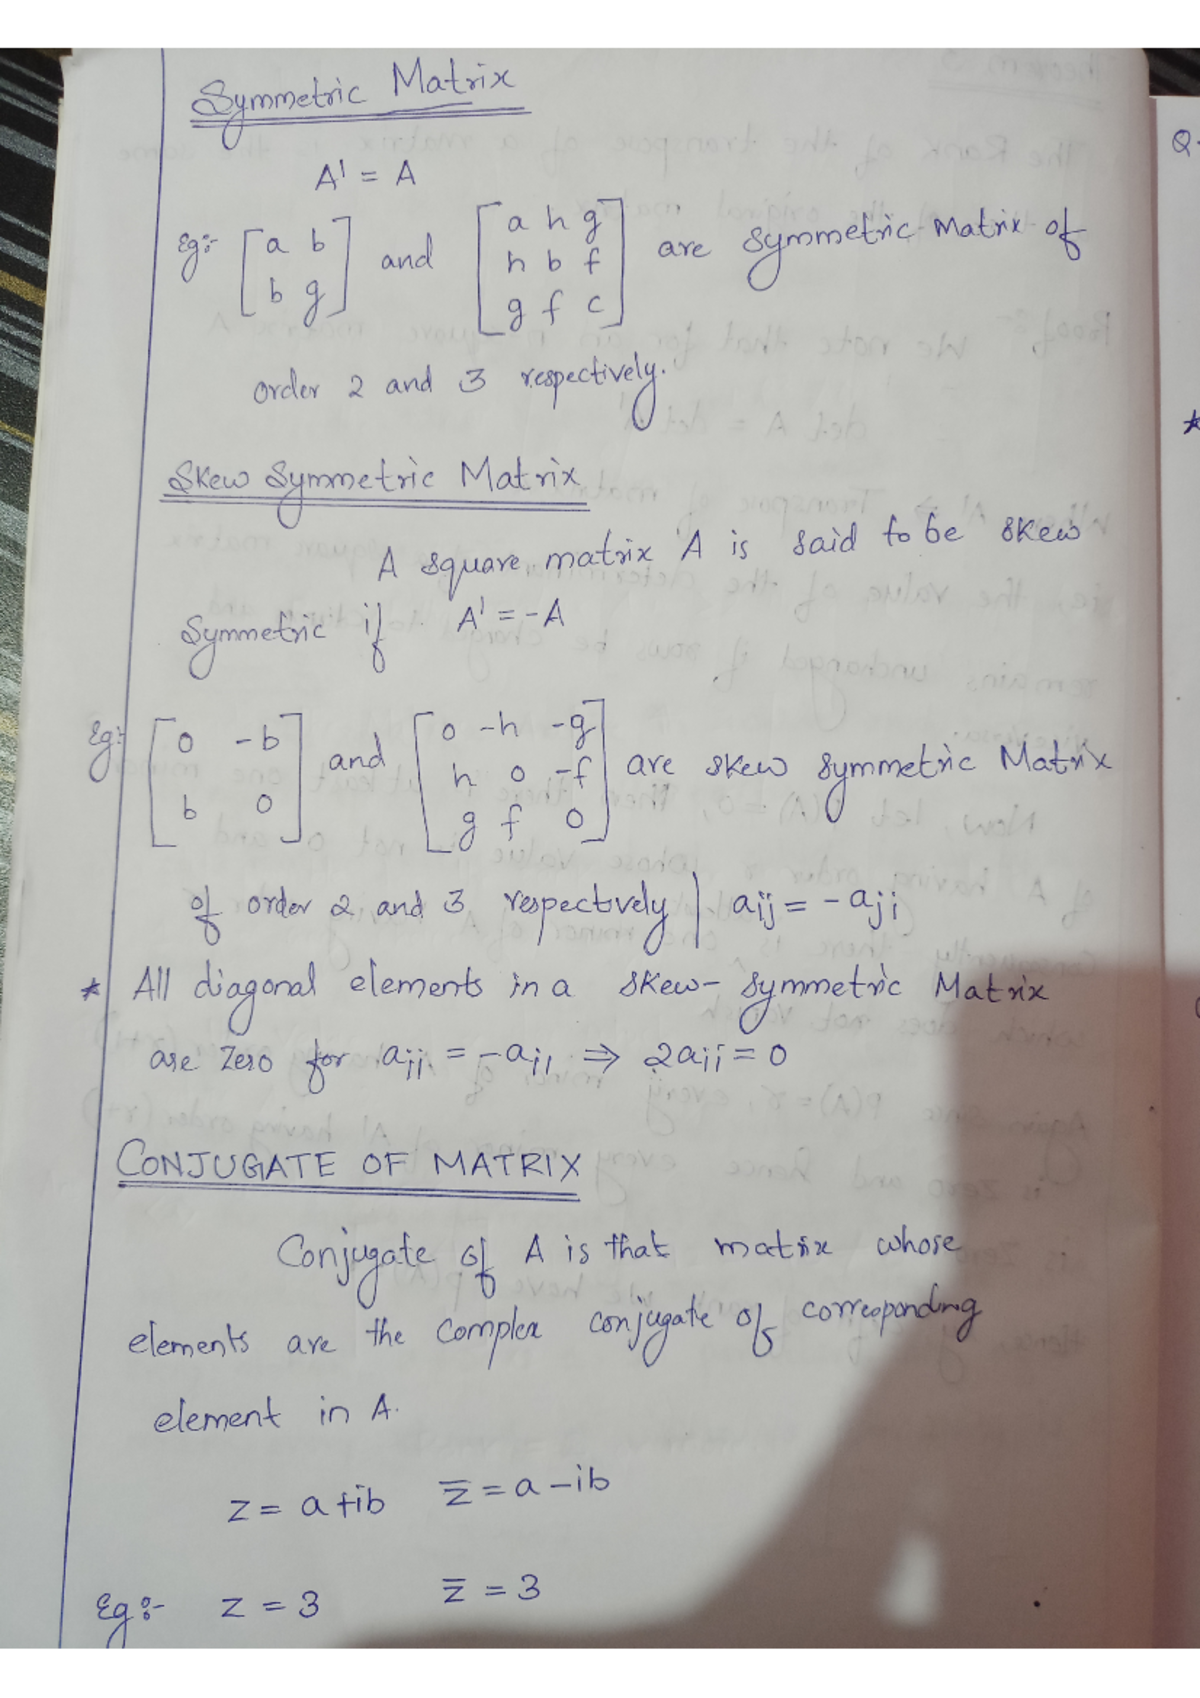 Symmetric Matrix
A' = A
Eg:- [a b
b g] and [a h g
h b f
g f c] are symmetric Matrix of
order 2 and 3 respectively.
Skew Symmetric Matrix
A square matrix A is said to be skew
Symmetric if A' = -A
Eg:- [0 -b
b 0] and [0 -h -g
h 0 -f
g f 0] are skew symmetric Matrix
of order 2 and 3 respectively | aij = -aji
* All diagonal elements in a skew-symmetric Matrix
are zero for aii = -aii ⇒ 2aii = 0
CONJUGATE OF MATRIX
Conjugate of A is that matrix whose
elements are the complex conjugate of corresponding
element in A.
z = a+ib z̅ = a-ib
Eg:- z = 3 z̅ = 3
Q
*